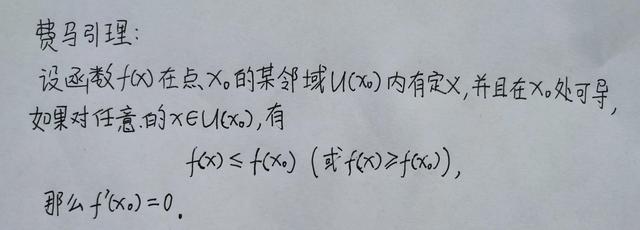 费马引理:
设函数f(x)在点x₀的某邻域U(x₀)内有定义,并且在x₀处可导,
如果对任意的x∈U(x₀),有
f(x)≤f(x₀) (或f(x)≥f(x₀)),
那么f'(x₀)=0.